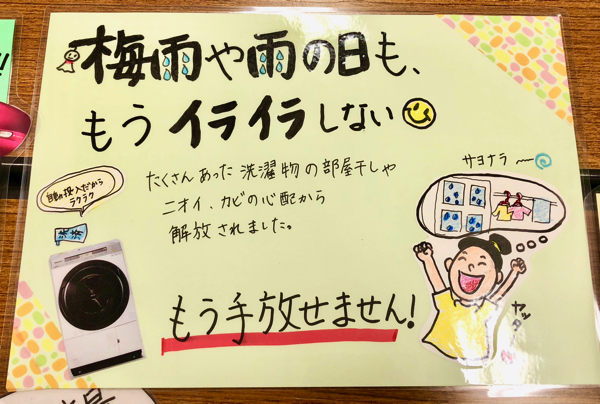 梅雨や雨の日も、
もうイライラしない
たくさんあった洗濯物の部屋干しや
ニオイ、カビの心配から
解放されました。
サヨナラ〜
自動投入だから
ラクラク
洗済
もう手放せません!
ヤッタ